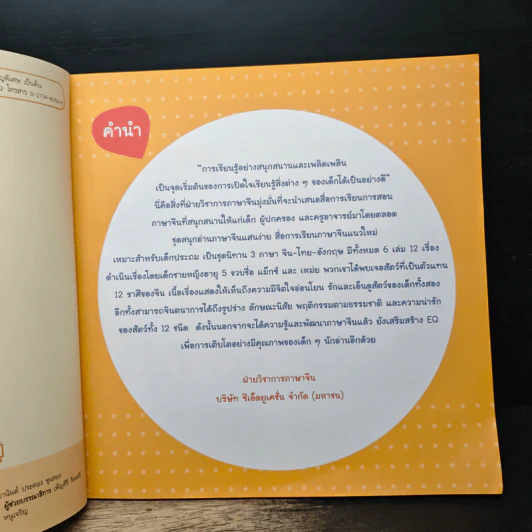 ญพิเศษ เป็นต้น
โทรสาร 0-2739-
คำนำ
"การเรียนรู้อย่างสนุกสนานและเพลิดเพลิน
เป็นจุดเริ่มต้นของการเปิดใจเรียนรู้สิ่งต่าง ๆ ของเด็กได้เป็นอย่างดี"
นี่คือสิ่งที่ฝ่ายวิชาการภาษาจีนมุ่งมั่นที่จะนำเสนอสื่อการเรียนการสอน
ภาษาจีนที่สนุกสนานให้แก่เด็ก ผู้ปกครอง และครูอาจารย์มาโดยตลอด
ชุดสนุกอ่านภาษาจีนแสนง่าย สื่อการเรียนภาษาจีนแนวใหม่
เหมาะสำหรับเด็กประถม เป็นชุดนิทาน 3 ภาษา จีน-ไทย-อังกฤษ มีทั้งหมด 6 เล่ม 12 เรื่อง
ดำเนินเรื่องโดยเด็กชายหญิงอายุ 5 ขวบชื่อ แม็กซ์ และ เหม่ย พวกเขาได้พบเจอสัตว์ที่เป็นตัวแทน
12 ราศีของจีน เนื้อเรื่องแสดงให้เห็นถึงความมีจิตใจอ่อนโยน รักและเอ็นดูสัตว์ของเด็กทั้งสอง
อีกทั้งสามารถจินตนาการได้ถึงรูปร่าง ลักษณะนิสัย พฤติกรรมตามธรรมชาติ และความน่ารัก
ของสัตว์ทั้ง 12 ชนิด ดังนั้นนอกจากจะได้ความรู้และพัฒนาภาษาจีนแล้ว ยังเสริมสร้าง EQ
เพื่อการเติบโตอย่างมีคุณภาพของเด็ก ๆ นักอ่านอีกด้วย
ฝ่ายวิชาการภาษาจีน
บริษัท ซีเอ็ดยูเคชั่น จำกัด (มหาชน)
านันต์ ประคอง ขุนทอง
ผู้ช่วยบรรณาธิการ เพ็ญศิริ
หนูเจริญ